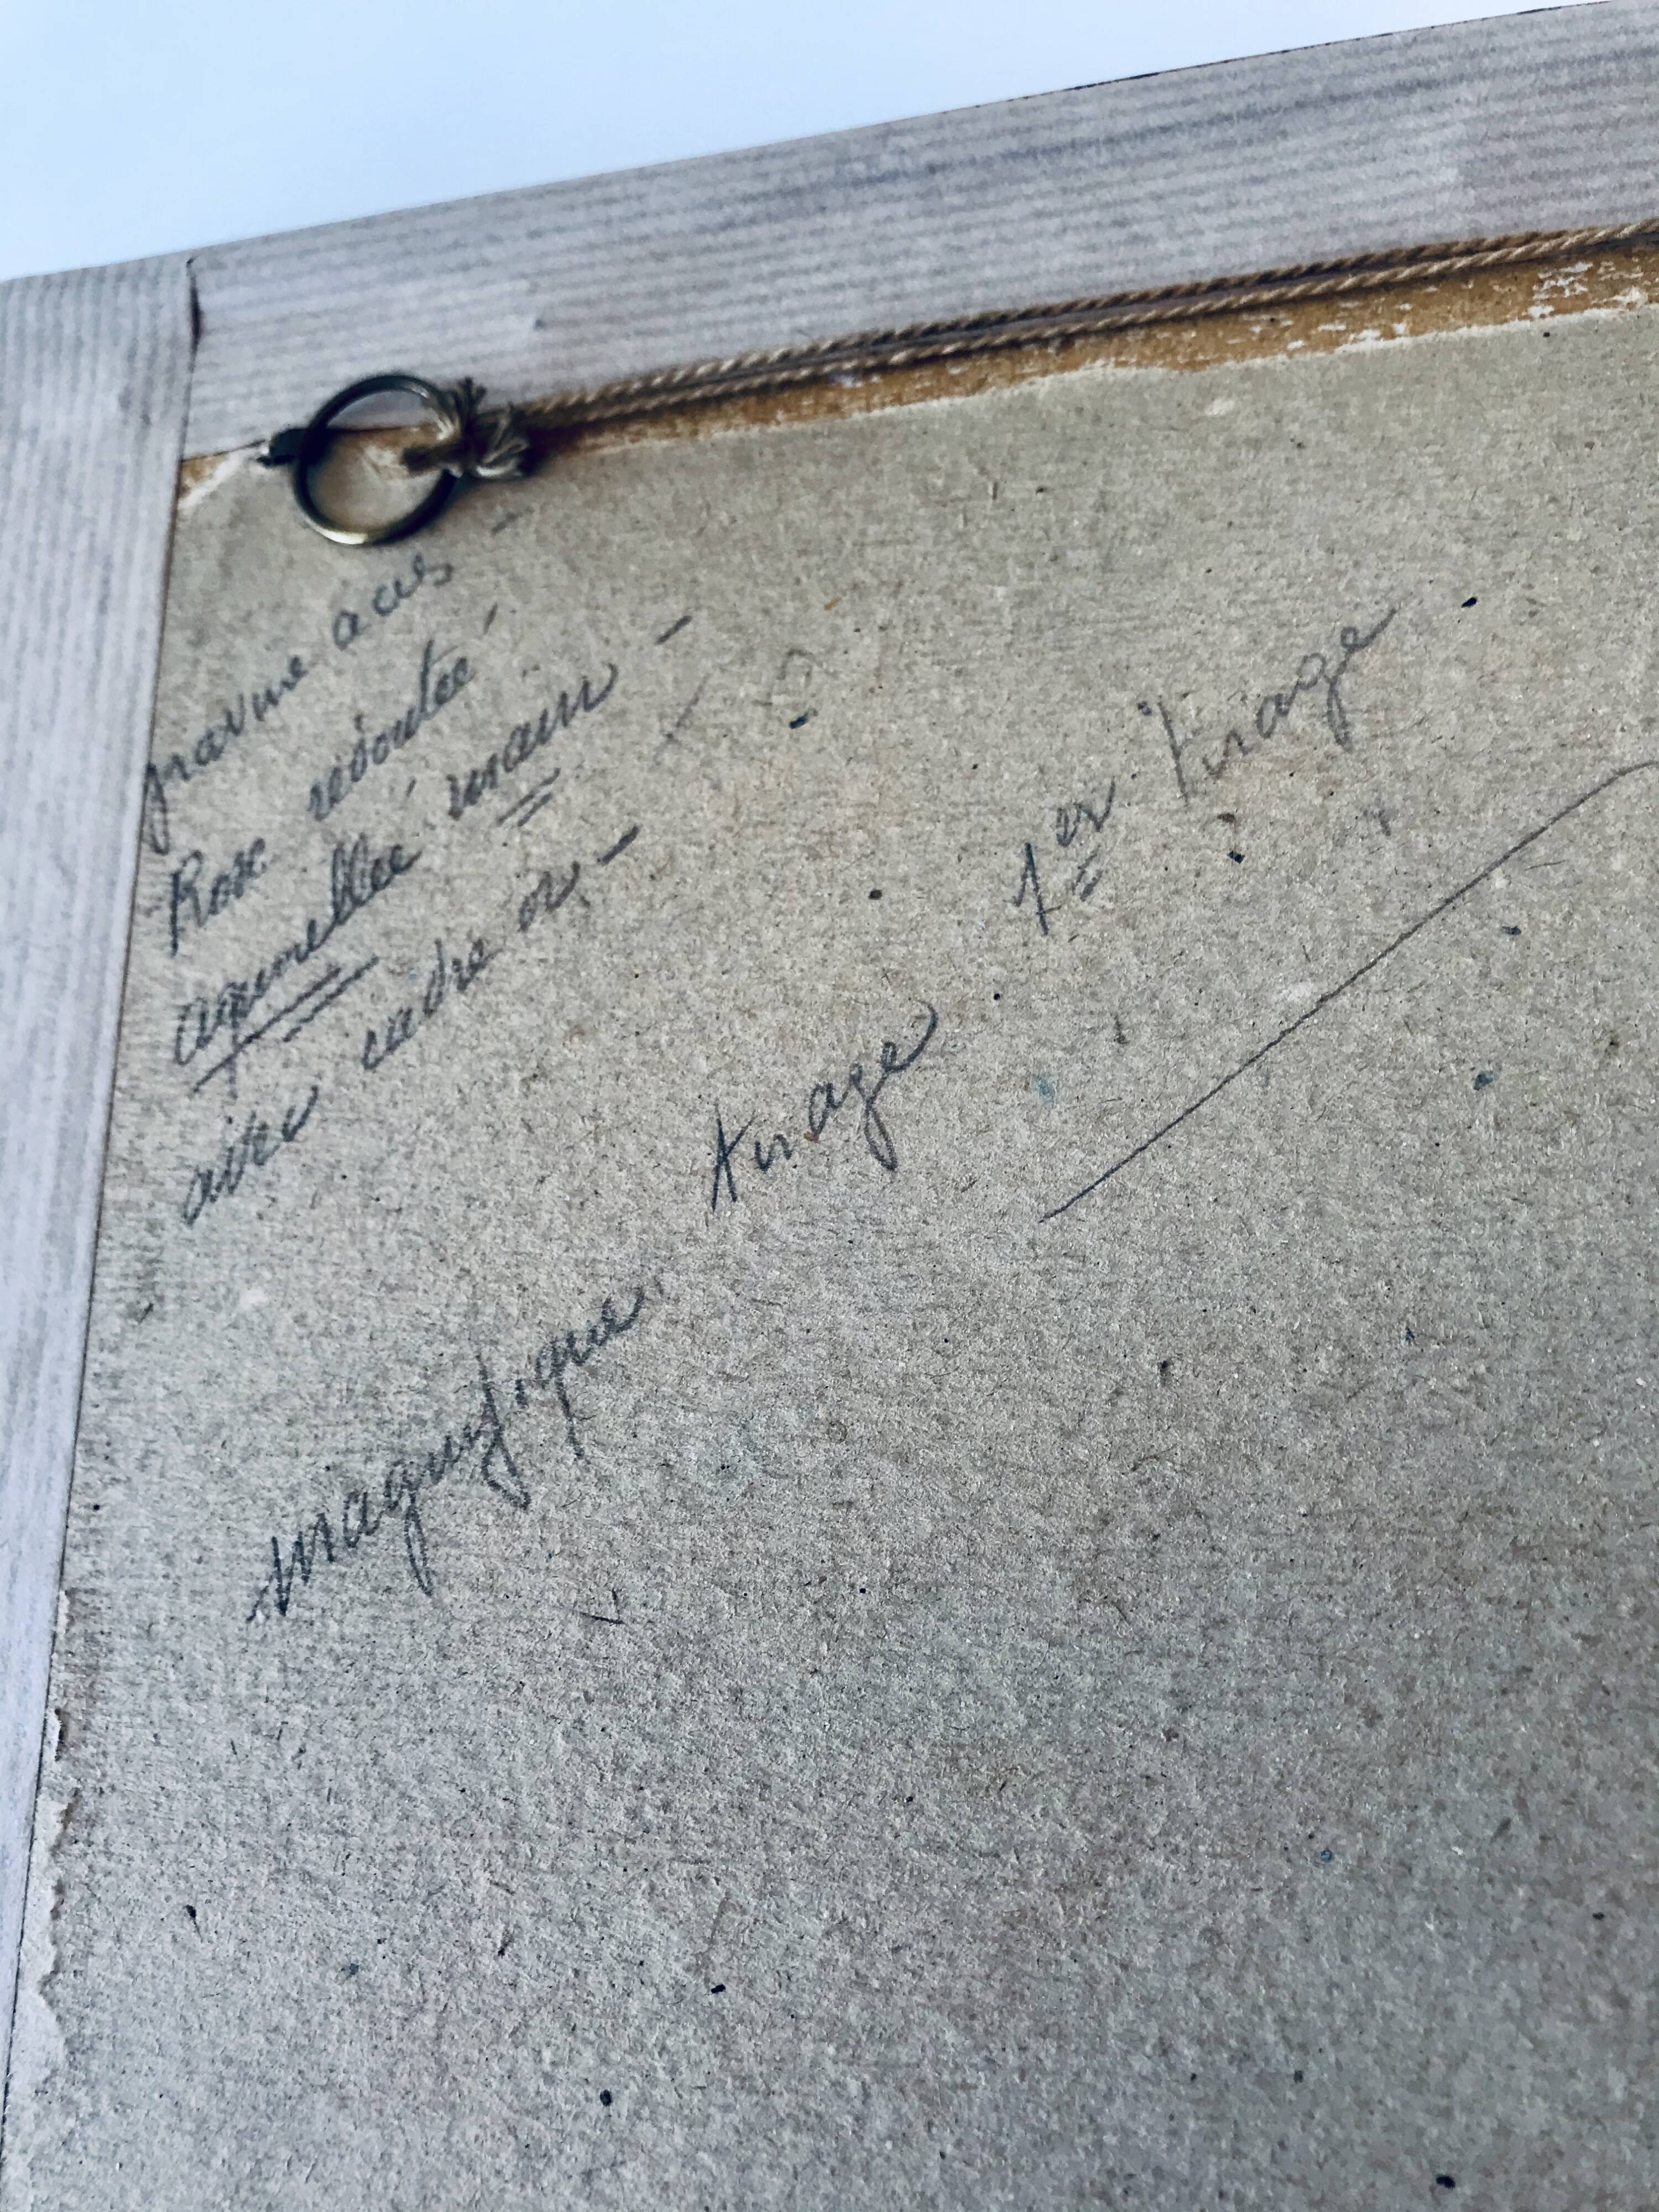 gravure acies -
Rose redouté
aquarellée main -
avec cadre or -
magnifique tirage 1er tirage